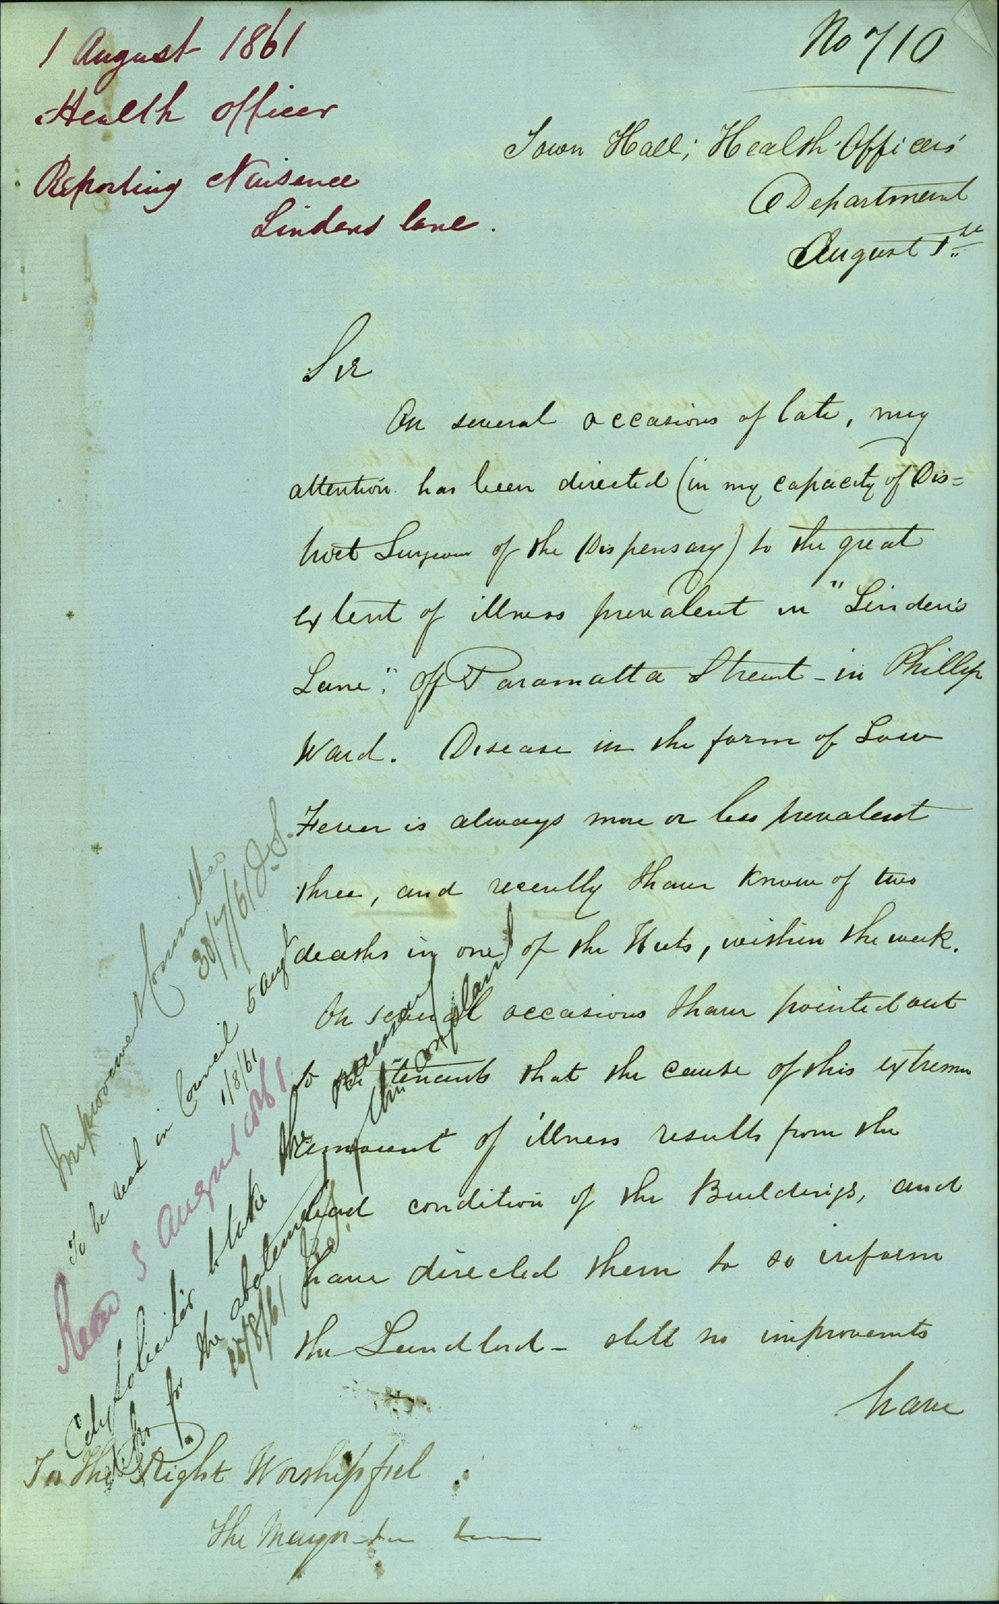 1 August 1861
Health officer
Reporting Nuisence
Lindens lane.
No 710
Town Hall; Health Officers'
Department
August 1st
Sir
On several occasions of late, my
attention has been directed (in my capacity of Dis=
trict Surgeon of the Dispensary) to the great
extent of illness prevalent in "Linden's
Lane". off Paramatta Street - in Phillip
Ward. Disease in the form of Low
Fever is always more or less prevalent
there, and recently I have known of two
deaths in one of the Huts, within the week.
On several occasions I have pointed out
to the tenants that the cause of this extreme
amount of illness results from the
bad condition of the Buildings, and
have directed them to so inform
the Landlord - still no improvements
have
To The Right Worshipful
The Mayor
Improvement Committee
30/7/61 J.S.
To be read in Council 5 Augt
1/8/61
Read 5 August 1861
City Solicitor to take the necessary
steps for the abatement of this complaint
20/8/61